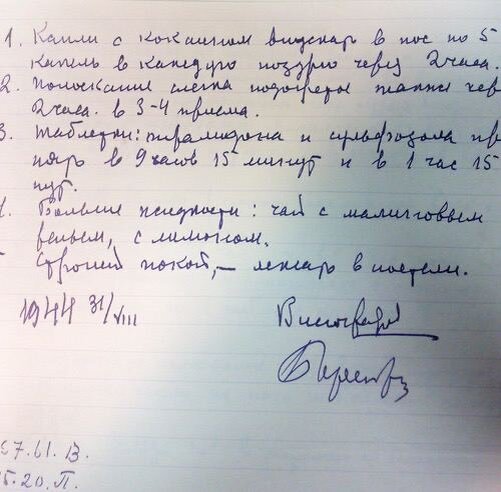 1. Капли с кокаином впускар в нос по 5
капель в каждую ноздрю через 2 часа.
2. Полоскание слегка подогретое также чер
2 часа. в 3-4 приема.
3. Таблетки: пирамидона и сульфазола пр
в 9 часов 15 минут и в 1 час 15
нут.
4. Больше жидкости: чай с малиновым
реньем, с лимоном.
Строгий покой, – лежать в постели.
1944 31/VIII
Виноградов
37.61. В.
5.20. П.